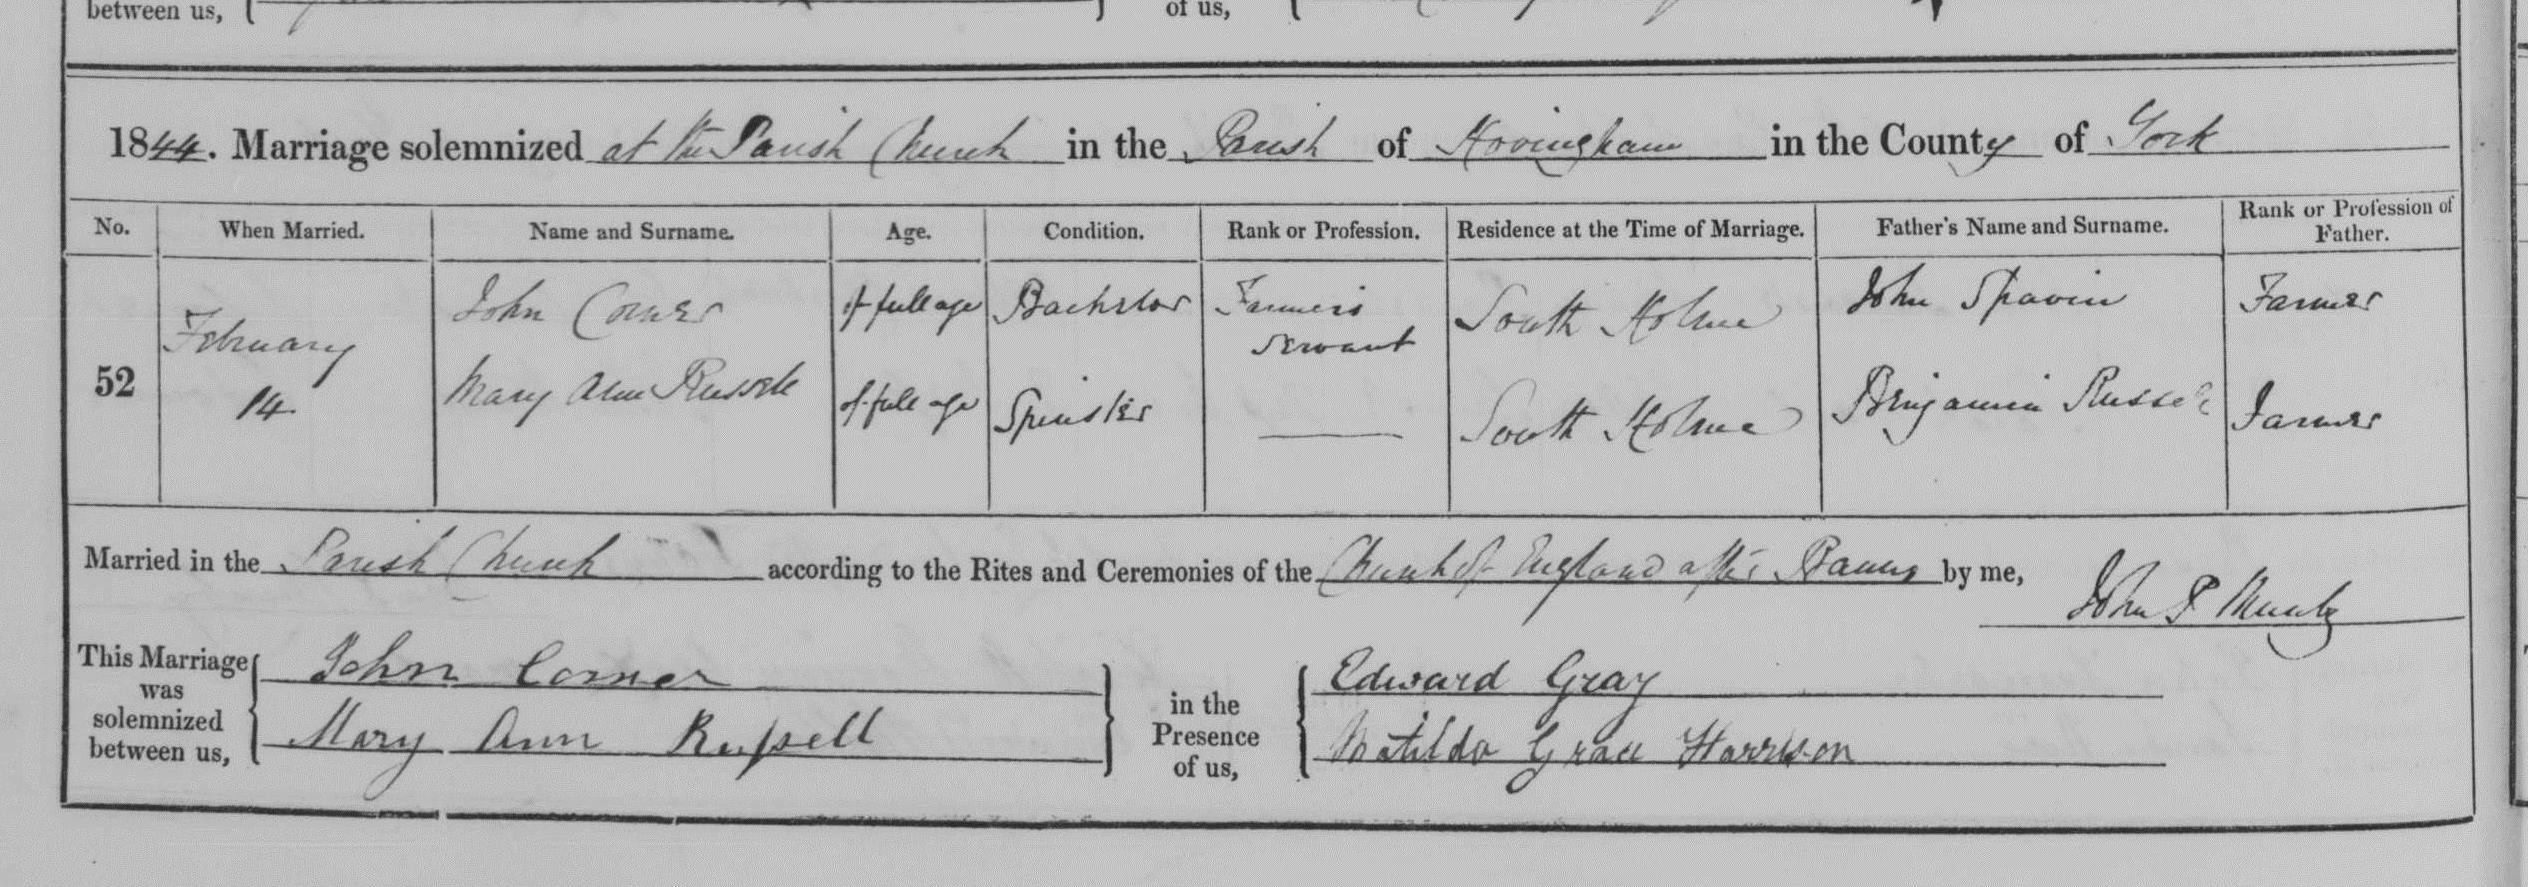 between us,
of us,
1844. Marriage solemnized at the Parish Church in the Parish of Hovingham in the County of York
No. When Married. Name and Surname. Age. Condition. Rank or Profession. Residence at the Time of Marriage. Father's Name and Surname. Rank or Profession of Father.
52 February 14. John Corner of full age Bachelor Farmer's Servant South Holme John Spavin Farmer
Mary Ann Russell of full age Spinster South Holme Benjamin Russell Farmer
Married in the Parish Church according to the Rites and Ceremonies of the Church of England after Banns by me,
John P Munby
This Marriage was solemnized between us, John Corner
Mary Ann Russell
in the Presence of us, Edward Gray
Matilda Grace Harrison